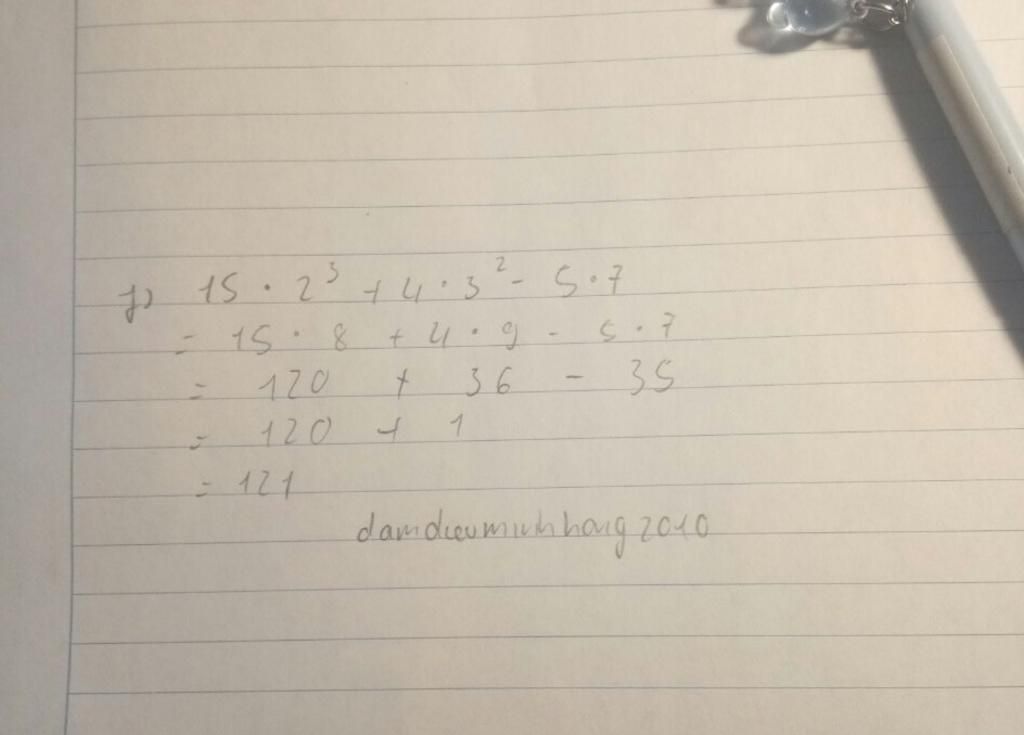 f) 15 · 2³ + 4 · 3² - 5 · 7
= 15 · 8 + 4 · 9 - 5 · 7
= 120 + 36 - 35
= 120 + 1
= 121
damdieuminhhong2010